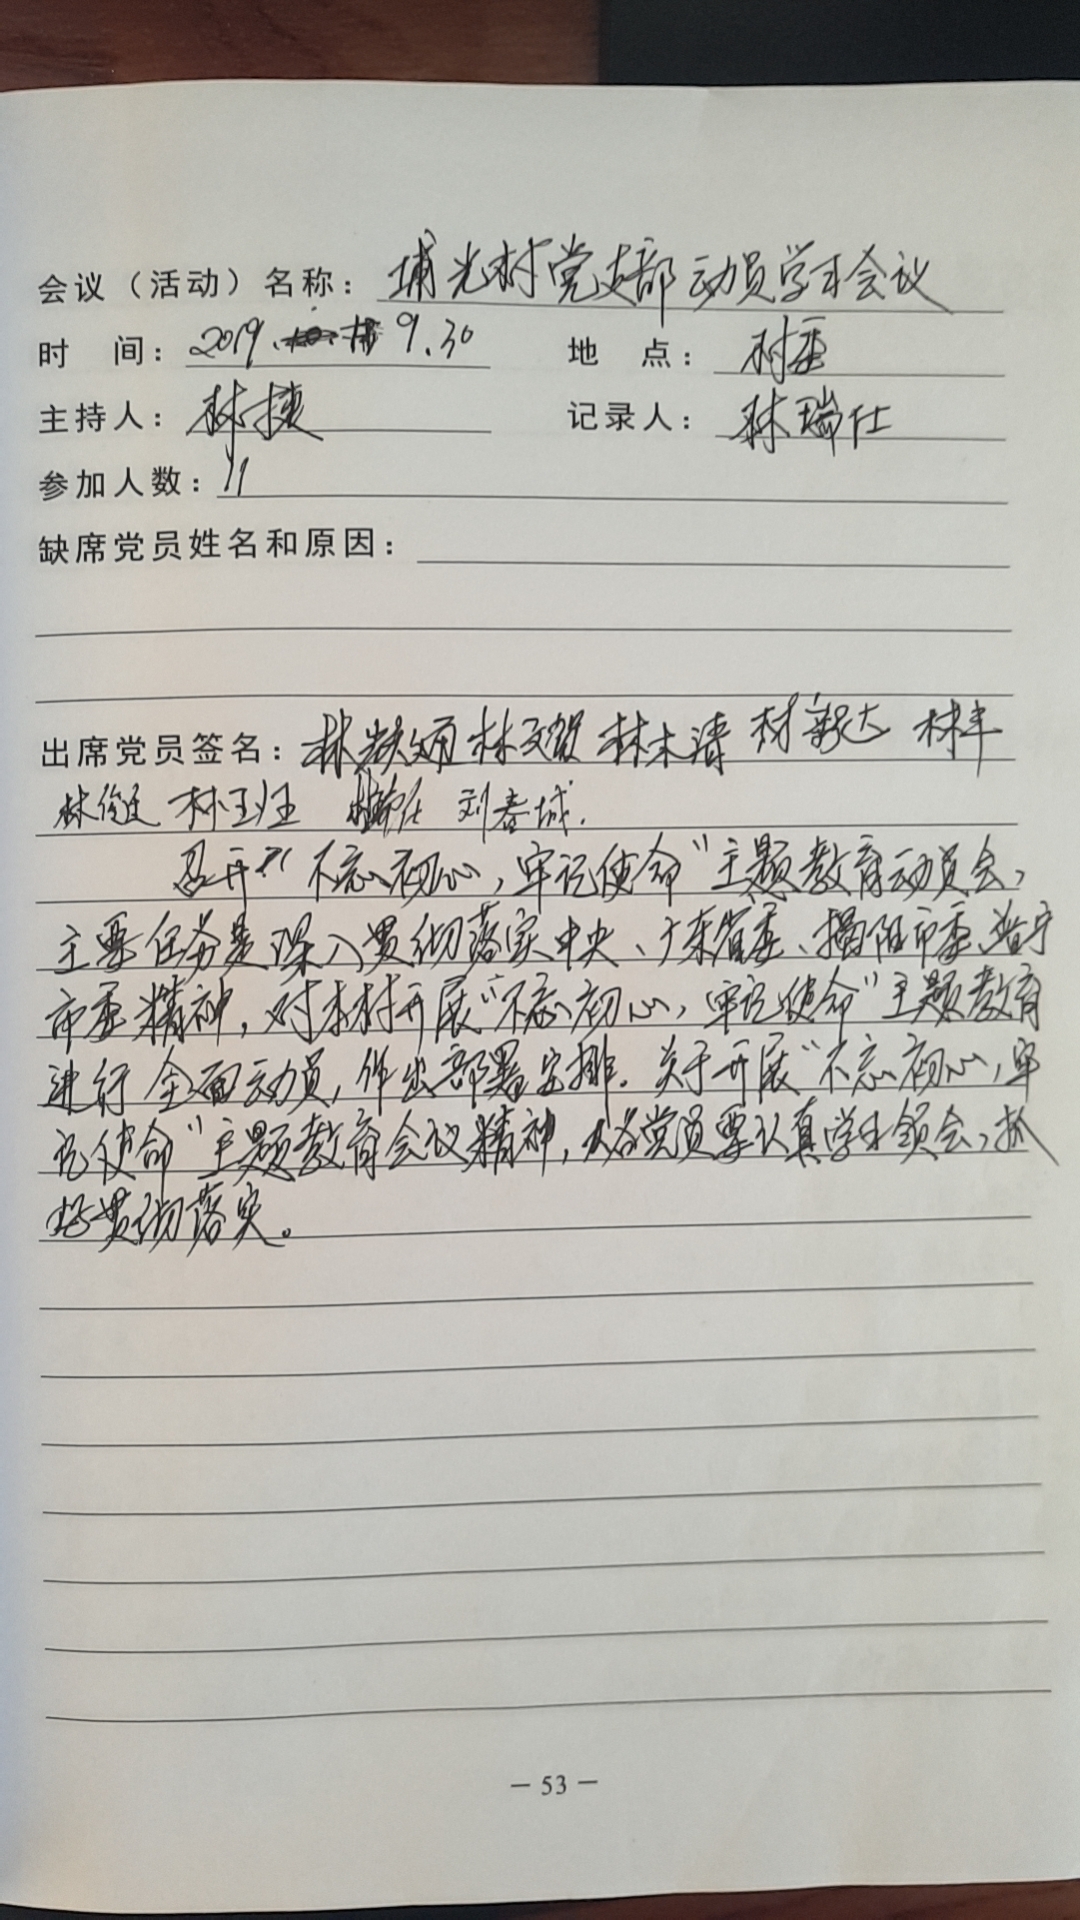 会议（活动）名称：埔光村党支部动员学习会议
时 间：2019. 9.30 地 点：村委
主持人：林捷 记录人：林瑞仕
参加人数：11
缺席党员姓名和原因：
出席党员签名：林 林文贺 林木清 林 达 林丰
林俊廷 林玉班 刘春城.
召开“不忘初心，牢记使命”主题教育动员会，
主要任务是深入贯彻落实中央、广东省委、揭阳市委、普宁
市委精神，对本村开展“不忘初心，牢记使命”主题教育
进行全面动员，作出部署安排．关于开展“不忘初心，牢
记使命”主题教育会议精神，各党员要认真学习领会，抓
好贯彻落实。
— 53 —